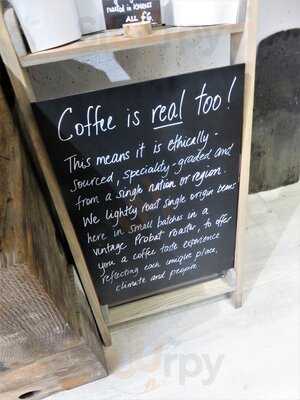 roasted in
ALL £6
Coffee is real too!
This means it is ethically-
sourced, speciality-graded and
from a single nation or region.
We lightly roast single origin beans
here in small batches in a
vintage Probat roaster, to offer
you a coffee taste experience
reflecting each unique place,
climate and people.